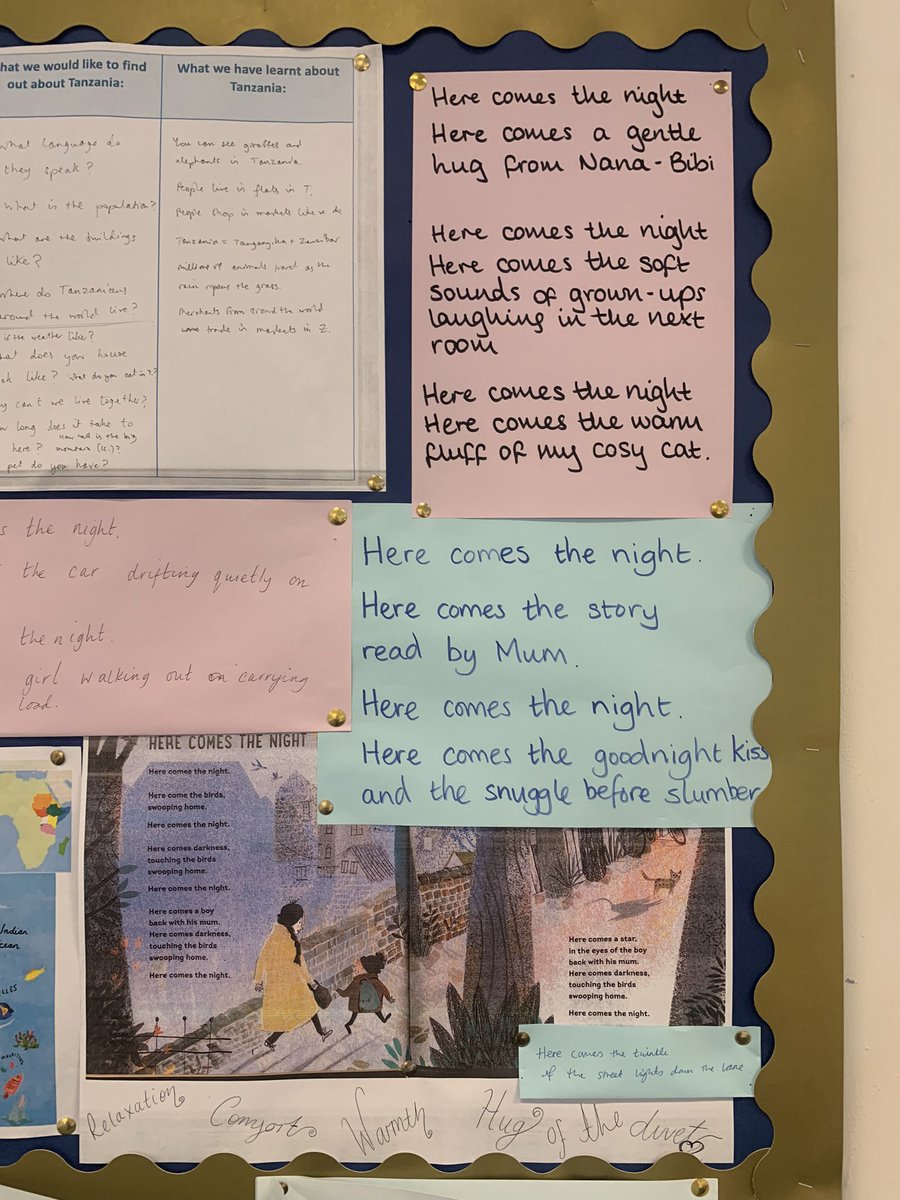 hat we would like to find
out about Tanzania:
what language do
they speak?
What is the population?
what are the buildings
like?
where do Tanzanians
around the world live?
is the weather like?
hat does your house
ok like? what do you eat in T.?
y can't we live together?
w long does it take to
here? How tall is the big
mountain (K.)?
pet do you have?
What we have learnt about
Tanzania:
You can see giraffes and
elephants in Tanzania.
People live in flats in T.
People shop in markets like we do
Tanzania = Tanganyika + Zanzibar
millions of animals travel as the
rain ripens the grass.
Merchants from around the world
come trade in markets in Z.
Here comes the night
Here comes a gentle
hug from Nana-Bibi
Here comes the night
Here comes the soft
sounds of grown-ups
laughing in the next
room
Here comes the night
Here comes the warm
fluff of my cosy cat.
s the night.
the car drifting quietly on
the night.
girl walking out on carrying
load.
Here comes the night.
Here comes the story
read by Mum.
Here comes the night.
Here comes the goodnight kiss
and the snuggle before slumber
HERE COMES THE NIGHT
Here comes the night.
Here come the birds,
swooping home.
Here comes the night.
Here comes darkness,
touching the birds
swooping home.
Here comes the night.
Here comes a boy
back with his mum.
Here comes darkness,
touching the birds
swooping home.
Here comes the night.
Here comes a star,
in the eyes of the boy
back with his mum.
Here comes darkness,
touching the birds
swooping home.
Here comes the night.
Here comes the twinkle
of the street lights down the lane
Indian
cean
LLES
Relaxation
Comfort
Warmth
Hug of the duvet